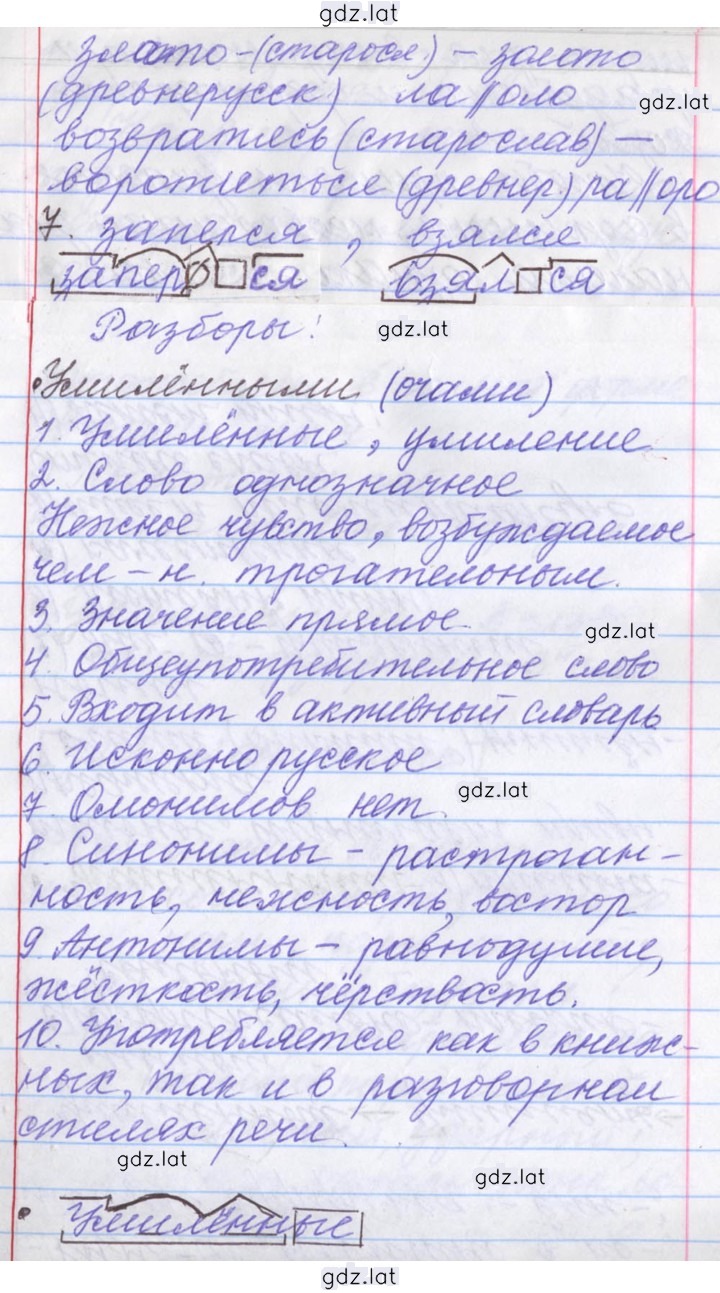 gdz.lat
злато - (старосл.) - золото
gdz.lat
(древнерусск) ла || оло
возвратясь (старослав) -
воротиться (древнер) ра || оро
7. заперся, взялся
запер ся взял ся
Разборы:
gdz.lat
Умилёнными (очами)
1. Умилённые, умиление
2. Слово однозначное
Нежное чувство, возбуждаемое
чем-н. трогательным.
3. Значение прямое.
gdz.lat
4. Общеупотребительное слово
5. Входит в активный словарь
6. Исконно русское
gdz.lat
7. Омонимов нет.
8. Синонимы - растроган-
ность, нежность, востор
9. Антонимы - равнодушие,
жёсткость, чёрствость.
10. Употребляется как в книж-
ных, так и в разговорном
стилях речи.
gdz.lat
gdz.lat
Умилённые
gdz.lat